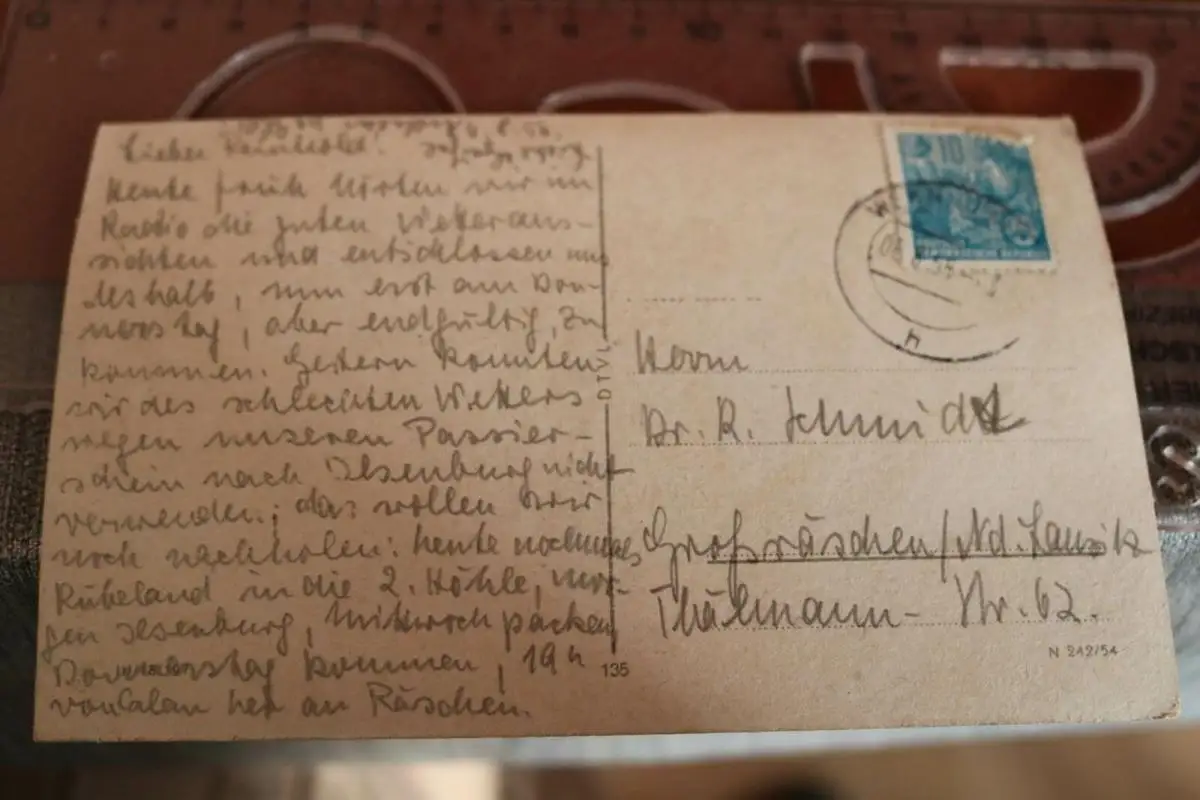 Lieber Reinhold!
Heute früh hörten wir im
Radio die guten Wetteraus-
sichten und entschlossen uns
deshalb, nun erst am Don-
nerstag, aber endgültig, zu
kommen. Gestern konnten
wir des schlechten Wetters
wegen unseren Passier-
schein nach Ilsenburg nicht
verwenden; das wollen wir
noch nachholen: heute nochmals
Rübeland in die 2. Höhle, mor-
gen Ilsenburg, Mittwoch packen
Donnerstag kommen, 19 h
von Calau her an Räschen.
DTV
135
10
Herrn
Dr. R. Schmidt
Großräschen/Nd. Lausitz
Thälmann- Str. 62.
N 242/54